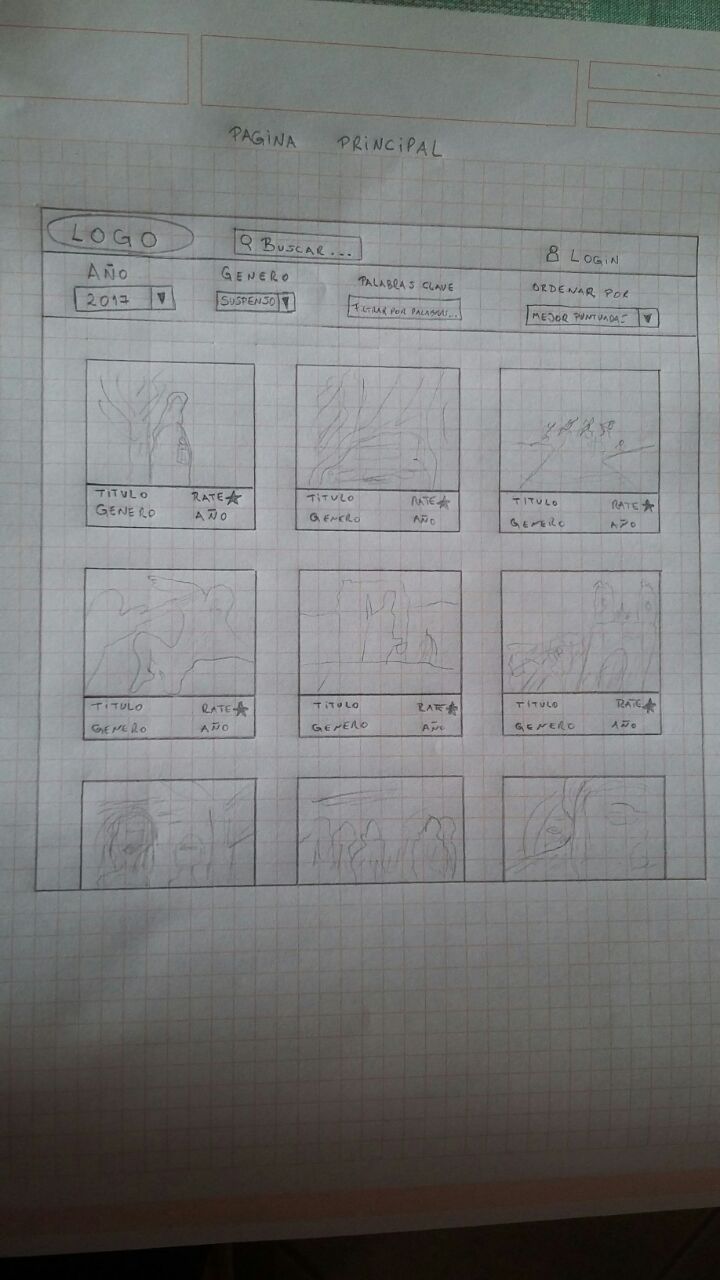 PAGINA PRINCIPAL
LOGO
BUSCAR...
LOGIN
AÑO
GENERO
PALABRAS CLAVE
ORDENAR POR
2017
SUSPENSO
FILTRAR POR PALABRAS...
MEJOR PUNTUADAS
TITULO RATE★
GENERO AÑO
TITULO RATE★
GENERO AÑO
TITULO RATE★
GENERO AÑO
TITULO RATE★
GENERO AÑO
TITULO RATE★
GENERO AÑO
TITULO RATE★
GENERO AÑO